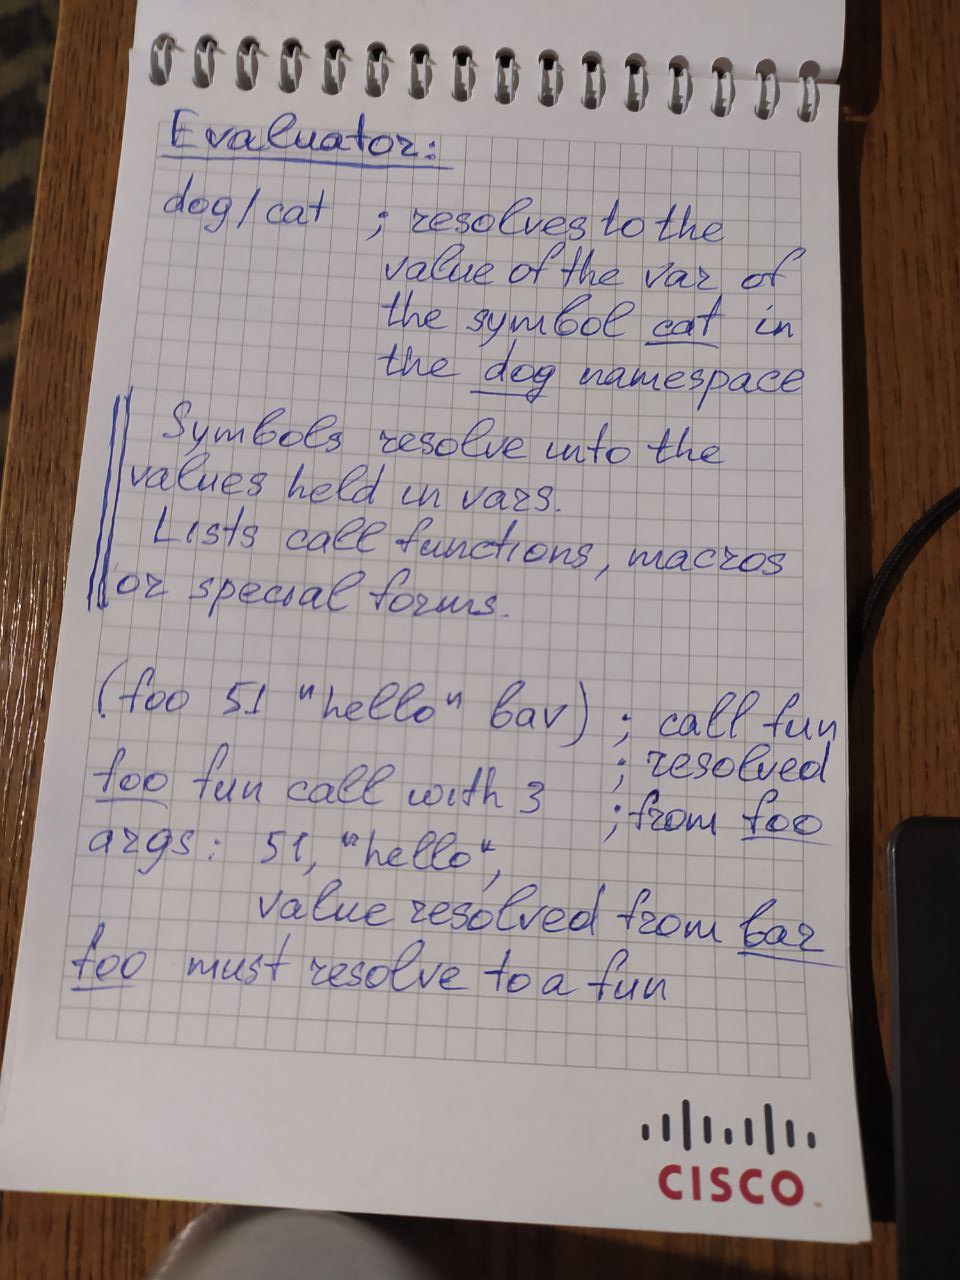 Evaluator:
dog/cat ; resolves to the
value of the var of
the symbol cat in
the dog namespace
Symbols resolve into the
values held in vars.
Lists call functions, macros
or special forms.
(foo 51 "hello" bav) ; call fun
; resolved
foo fun call with 3 ; from foo
args: 51, "hello",
value resolved from bar
foo must resolve to a fun
CISCO